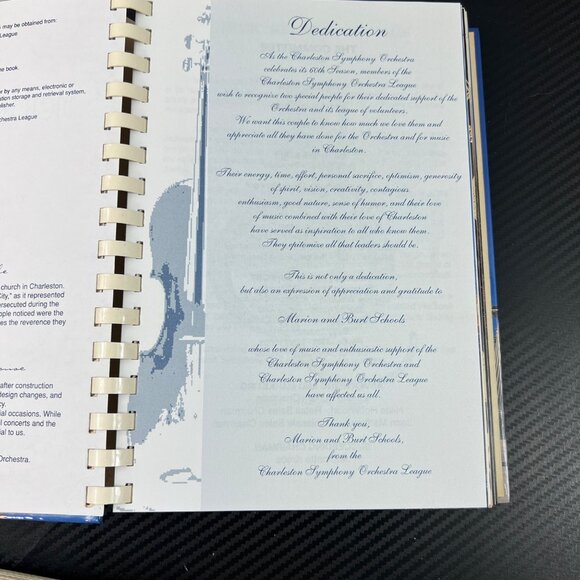 may be obtained from:
League
the book.
or by any means, electronic or
storage and retrieval system,
League
church in Charleston.
City," as it represented
ersecuted during the
ople noticed were the
es the reverence they
after construction
design changes, and
cy.
ial occasions. While
l concerts and the
ial to us.
Orchestra.
Dedication
As the Charleston Symphony Orchestra
celebrates its 60th Season, members of the
Charleston Symphony Orchestra League
wish to recognize two special people for their dedicated support of the
Orchestra and its league of volunteers.
We want this couple to know how much we love them and
appreciate all they have done for the Orchestra and for music
in Charleston.
Their energy, time, effort, personal sacrifice, optimism, generosity
of spirit, vision, creativity, contagious
enthusiasm, good nature, sense of humor, and their love
of music combined with their love of Charleston
have served as inspiration to all who know them.
They epitomize all that leaders should be.
This is not only a dedication,
but also an expression of appreciation and gratitude to
Marion and Burt Schools
whose love of music and enthusiastic support of the
Charleston Symphony Orchestra and
Charleston Symphony Orchestra League
have affected us all.
Thank you,
Marion and Burt Schools,
from the
Charleston Symphony Orchestra League